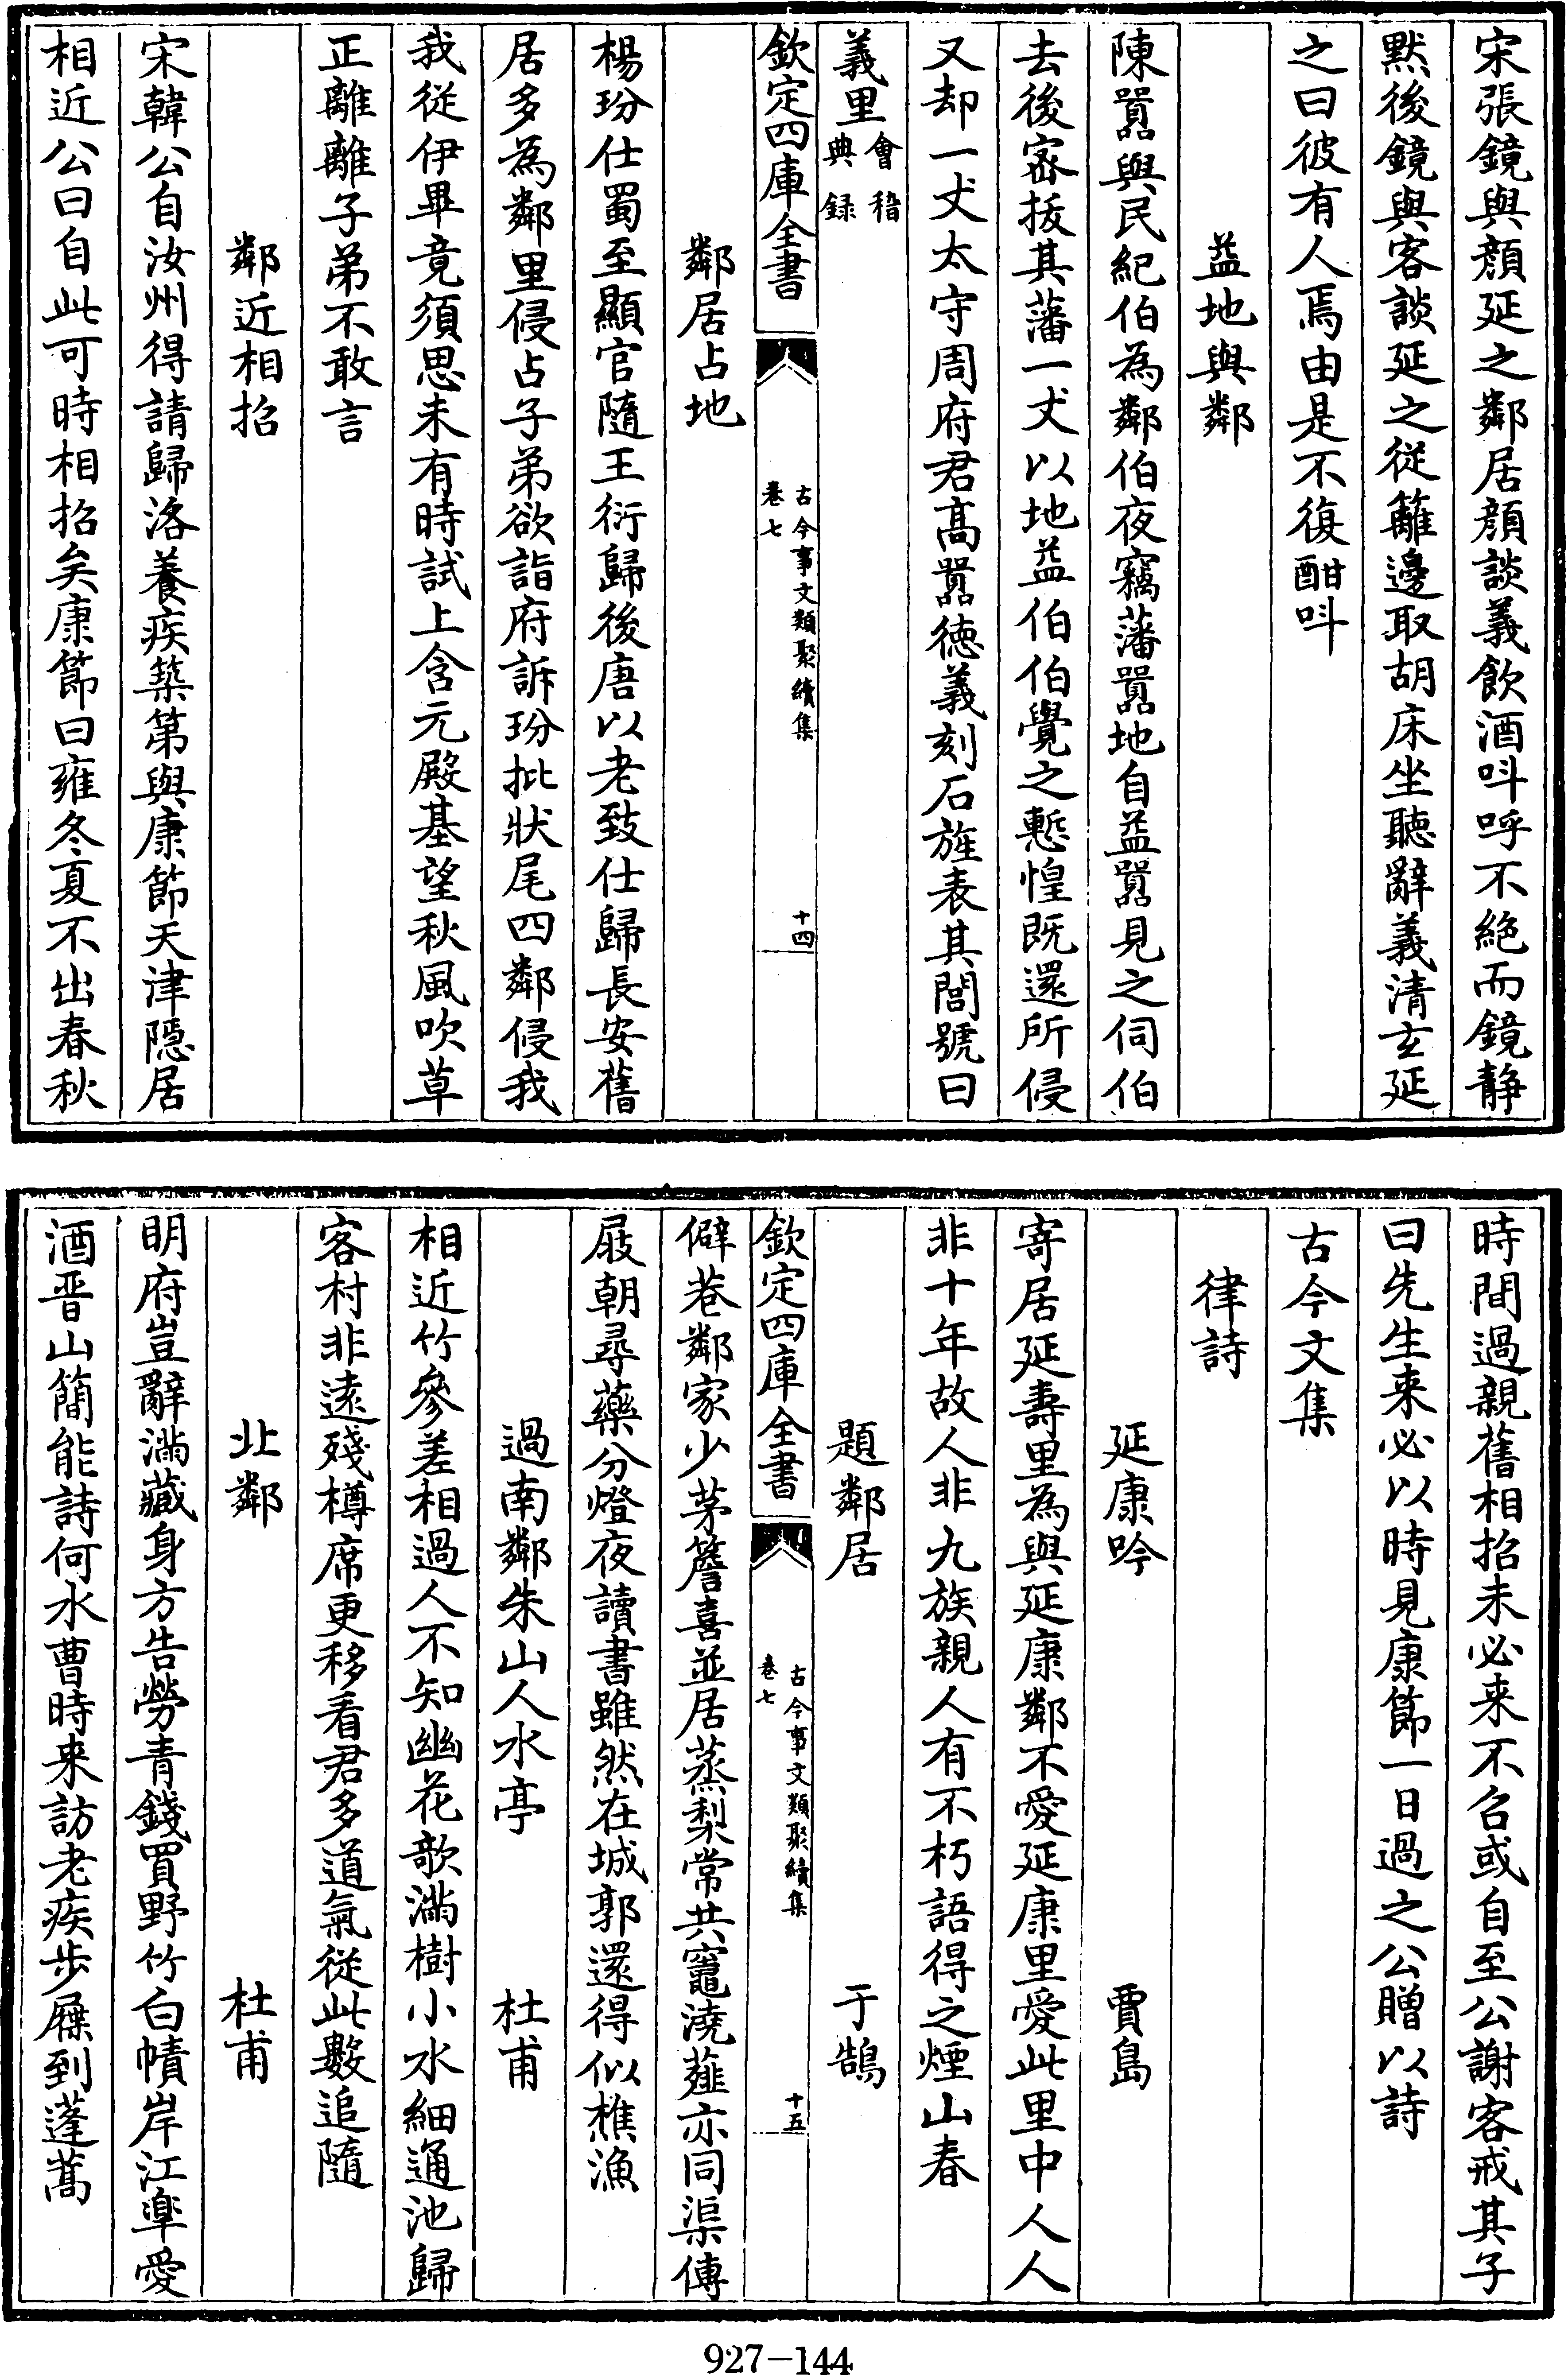 宋張鏡與顔延之鄰居顔談義飲酒呌呼不絶而鏡静
黙後鏡與客談延之從籬邊取胡床坐聽辭義清玄延
之曰彼有人焉由是不復酣呌
益地與鄰
陳嚣與民紀伯為鄰伯夜竊藩嚣地自益嚣見之伺伯
去後宻拔其藩一丈以地益伯伯覺之慙惶既還所侵
又却一丈太守周府君髙嚣徳義刻石旌表其閭號曰
義里會稽典録
欽定四庫全書
古今事文類聚續集
卷七
十四
鄰居占地
楊玢仕蜀至顯官隨王衍歸後唐以老致仕歸長安舊
居多為鄰里侵占子弟欲詣府訴玢批狀尾四鄰侵我
我從伊畢竟須思未有時試上含元殿基望秋風吹草
正離離子弟不敢言
鄰近相招
宋韓公自汝州得請歸洛養疾築第與康節天津隠居
相近公曰自此可時相招矣康節曰雍冬夏不出春秋
時間過親舊相招未必来不召或自至公謝客戒其子
曰先生来必以時見康節一日過之公贈以詩
古今文集
律詩
延康吟 賈島
寄居延壽里為與延康鄰不愛延康里愛此里中人人
非十年故人非九族親人有不朽語得之煙山春
題鄰居 于鵠
欽定四庫全書
古今事文類聚續集
卷七
十五
僻巷鄰家少茅簷喜並居蒸梨常共竈澆薤亦同渠傳
屐朝尋藥分燈夜讀書雖然在城郭還得似樵漁
過南鄰朱山人水亭 杜甫
相近竹參差相過人不知幽花歌滿樹小水細通池歸
客村非逺殘樽席更移看君多道氣從此數追隨
北鄰 杜甫
明府豈辭滿藏身方告勞青錢買野竹白幘岸江臯愛
酒晋山簡能詩何水曹時来訪老疾步屧到蓬蒿
927-144